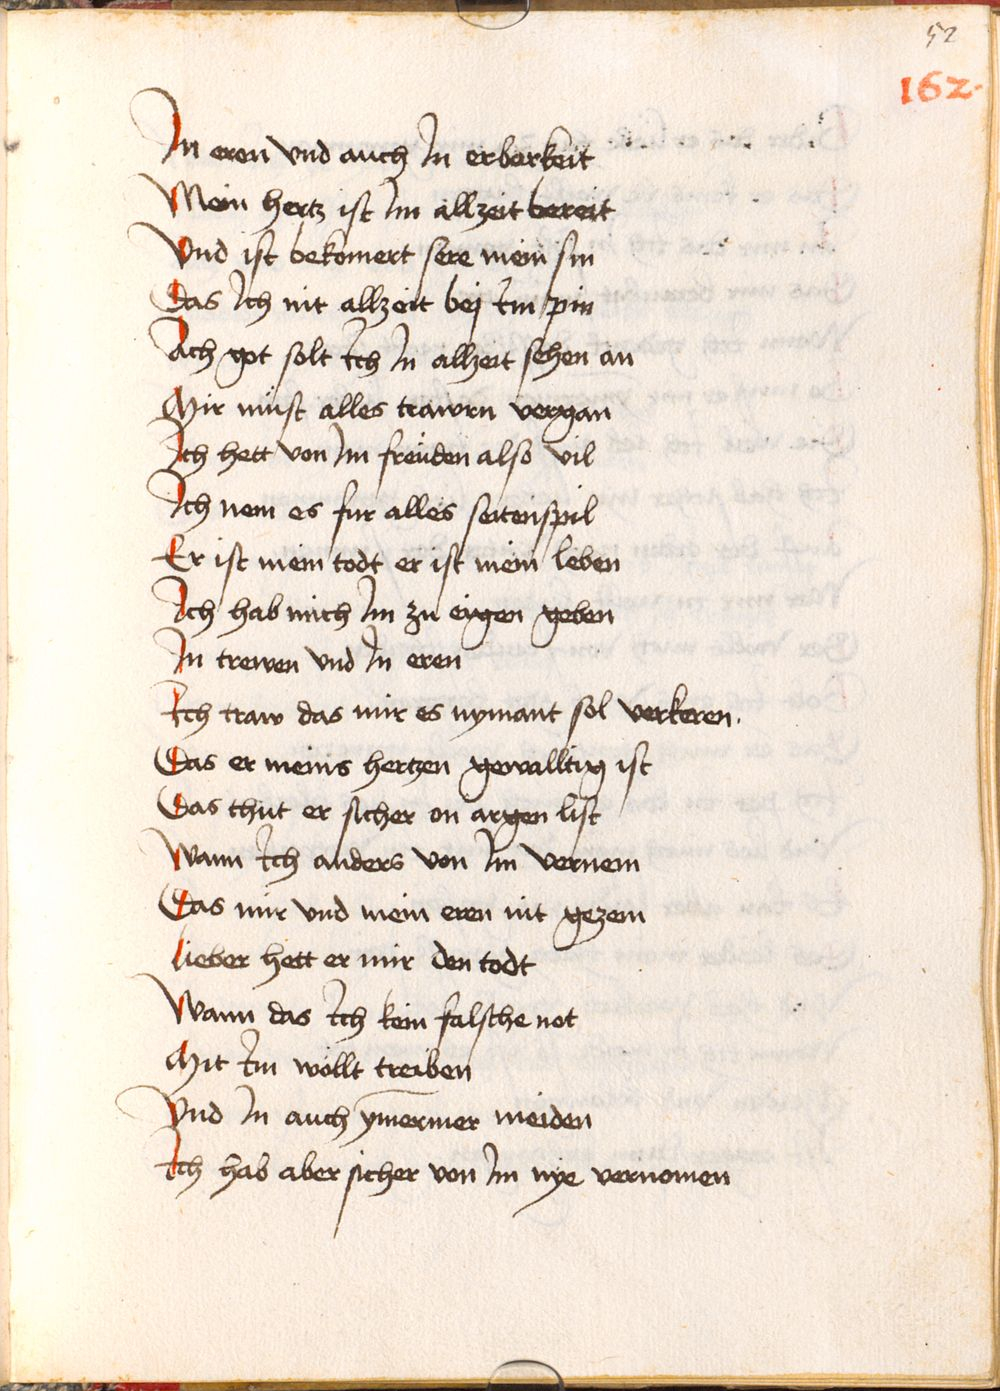 52
162.
In eren vnd auch In erberkeit
Mein hertz ist Im allzeit bereit
Vnd ist bekomert sere mein sin
Das Ich nit allzeit bej Im pin
Ach got solt Ich In allzeit sehen an
Mir müst alles trawrn vergan
Ich hett von Im freüden also vil
Ich nem es fur alles seitenspil
Er ist mein todt er ist mein leben
Ich hab mich Im zu eigen geben
In trewen vnd In eren
Ich traw das mir es nymant sol verkeren.
Das er meins hertzen gewalltig ist
Das thüt er sicher on argen list
Wann Ich anders von Im vernem
Das mir vnd mein eren nit gezem
lieber hett er mir den todt
Wann das Ich kein falsche not
Mit Im wöllt treiben
Vnd In auch ymermer meiden
Ich hab aber sicher von Im nye vernomen